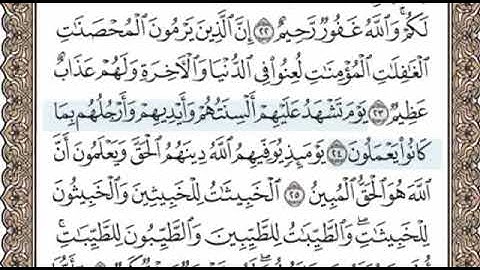 لَكُمْ ۗ وَاللَّهُ غَفُورٌ رَّحِيمٌ ٢٢ إِنَّ الَّذِينَ يَرْمُونَ الْمُحْصَنَاتِ
الْغَافِلَاتِ الْمُؤْمِنَاتِ لُعِنُوا فِي الدُّنْيَا وَالْآخِرَةِ وَلَهُمْ عَذَابٌ
عَظِيمٌ ٢٣ يَوْمَ تَشْهَدُ عَلَيْهِمْ أَلْسِنَتُهُمْ وَأَيْدِيهِمْ وَأَرْجُلُهُم بِمَا
كَانُوا يَعْمَلُونَ ٢٤ يَوْمَئِذٍ يُوَفِّيهِمُ اللَّهُ دِينَهُمُ الْحَقَّ وَيَعْلَمُونَ أَنَّ
اللَّهَ هُوَ الْحَقُّ الْمُبِينُ ٢٥ الْخَبِيثَاتُ لِلْخَبِيثِينَ وَالْخَبِيثُونَ
لِلْخَبِيثَاتِ ۖ وَالطَّيِّبَاتُ لِلطَّيِّبِينَ وَالطَّيِّبُونَ لِلطَّيِّبَاتِ ۚ